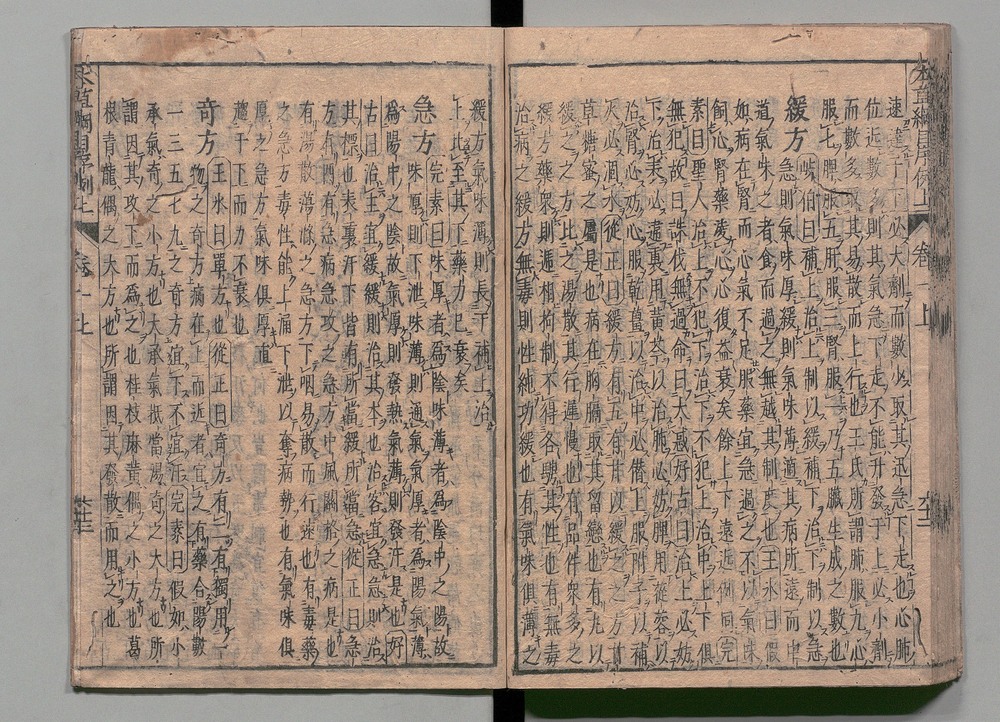 本草綱目序例上　卷一上
速達于下必大劑而數少取其迅急下走也心肺
位近數多則其氣急下走不能升發于上必小劑
而數多取其易散而上行也王氏所謂肺服九心
服七脾服五肝服三腎服一乃五臟生成之數也
緩方　岐伯曰補上治上制以緩補下治下制以急
急則氣味厚緩則氣味薄適其病所遠而中
道氣味之者食而過之無越其制度也王冰曰假
如病在腎而心氣不足服藥宜急過之不以氣味
飼心腎藥凌心心復益衰矣餘上下遠近例同完
素曰聖人治上不犯下治下不犯上治中上下俱
無犯故曰誅伐無過命曰大惑好古曰治上必妨
下治表必違裏用黃芩以治肺必妨脾用蓯蓉以
治腎必妨心服乾薑以治中必僭上服附子以補
火必涸水從正曰緩方有五有甘以緩之甘
草糖蜜之屬是也病在胸膈取其留戀也有丸以
緩之之方比之湯散其行遲慢也有品件衆多之
緩方藥衆則遞相拘制不得各騁其性也有無毒
治病之緩方無毒則性純功緩也有氣味俱薄之
緩方氣味薄則長于補上治
上比至其下藥力已衰矣
急方　完素曰味厚者爲陰味薄者爲陰中之陽故
味厚則下泄味薄則通氣氣厚者爲陽氣薄
爲陽中之陰故氣厚則發熱氣薄則發汗是也好
古曰治主宜緩緩則治其本也治客宜急急則治
其標也表裏汗下皆有所當緩所當急從正曰急
方有四有急病急攻之急方中風關格之病是也
有湯散蕩滌之急方下咽易散而行速也有毒藥
之急方毒性能上涌下泄以奪病勢也有氣味俱
厚之急方氣味俱厚直
趨于下而力不衰也
奇方　王冰曰單方也從正曰奇方有二有獨用一
物之奇方病在上而近者宜之有藥合陽數
一三五七九之奇方宜下不宜汗完素曰假如小
承氣奇之小方也大承氣抵當湯奇之大方也所
謂因其攻下而爲之也桂枝麻黃偶之小方也葛
根青龍偶之大方也所謂因其發散而用之也
本草綱目序例上　卷一上